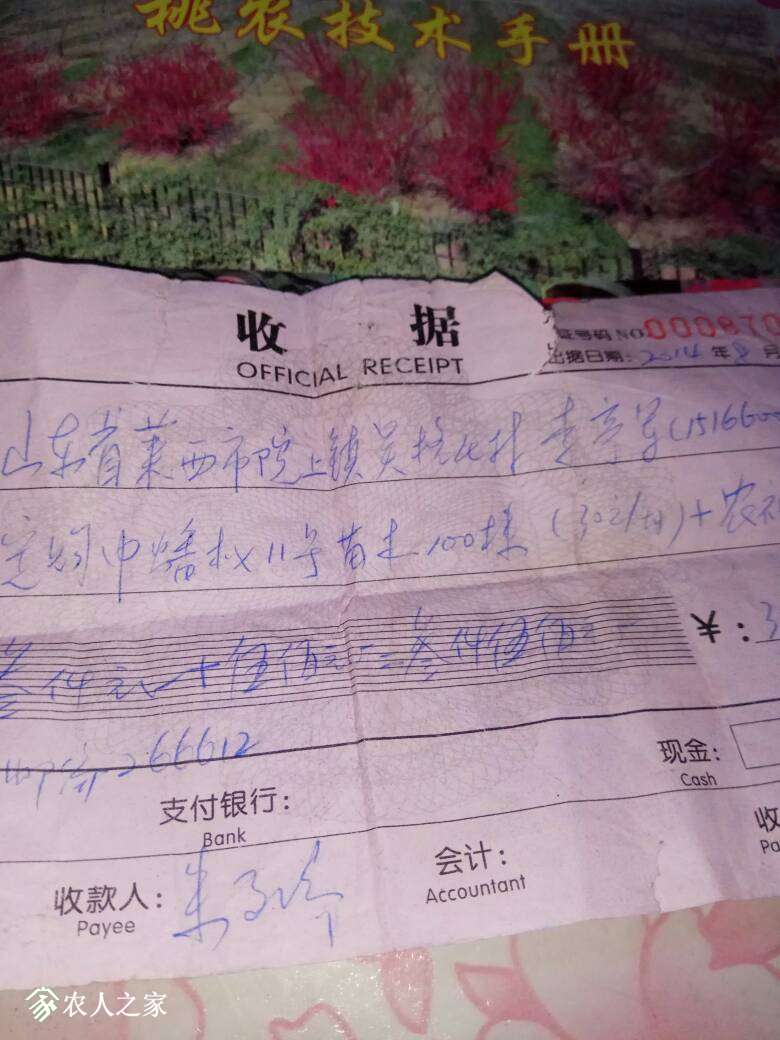 桃农技术手册
收 据
OFFICIAL RECEIPT
证号码 NO 000870
出据日期: 2014 年 8 月
山东省莱西市院上镇吴 村 李 军 (151660
定购中蟠 11号苗木100株 (30元/株) + 农
叁仟元 + 伍佰元 = 叁仟伍佰元
¥: 3
邮 266612
现金:
Cash
支付银行:
Bank
收
Pa
会计:
Accountant
收款人: 朱
Payee
农人之家